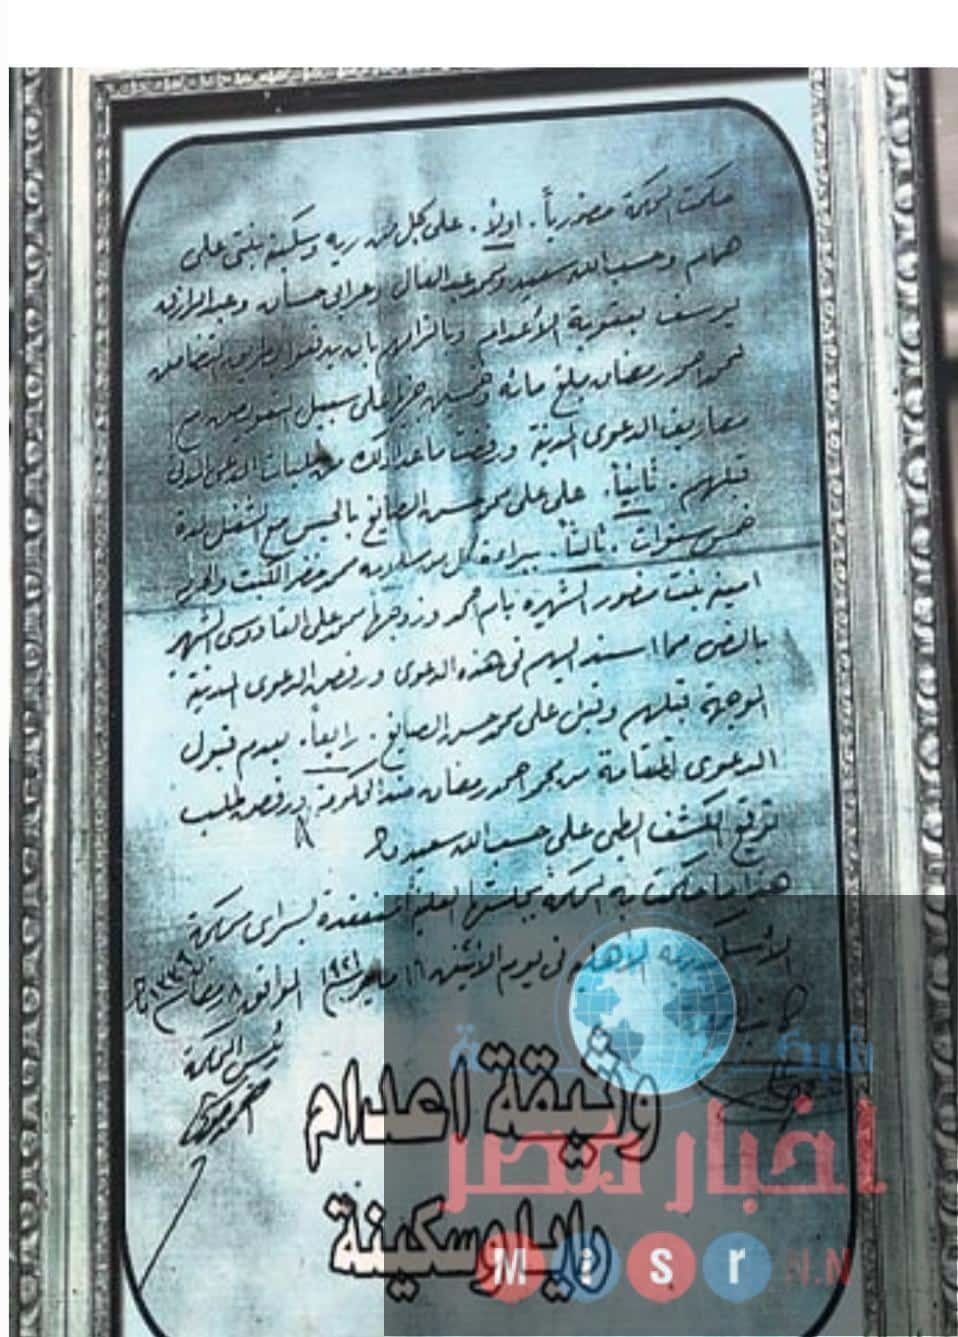 حكمت المحكمة حضورياً. اولاً. على كل من ريه وسكينة بنتى على
همام وحسب الله سعيد ومحمد عبد العال وعرابى حسان وعبد الرازق
يوسف بعقوبة الأعدام وبالزامهم بان يدفعوا بطريق التضامن
لمحمد احمد رمضان مبلغ مائة وخمسين جنيها على سبيل التعويض مع
مصاريف الدعوى المدنية ورفضت ماعدا ذلك من طلبات المدعى المدنى
قبلهم. ثانياً. على على محمد حسن الصايغ بالحبس مع الشغل لمدة
خمس سنوات. ثالثاً. ببراءة كل من سلامه محمد خضر الكبت والحرمه
امينه بنت منصور الشهيره بام احمد وزوجها محمد على القادوسى الشهير
بالنص مما اسند اليهم فى هذه الدعوى ورفض الدعوى المدنية
الموجهة قبلهم وقبل على محمد حسن الصايغ. رابعاً. بعدم قبول
الدعوى المقامة من محمد احمد رمضان ضد الحكومة ورفض طلب
توقيع الكشف الطبى على حسب الله سعيد
هذا ما حكمت به المحكمة بجلستها العلنية المنعقدة بسراى محكمة
الأسكندرية الأهلية فى يوم الاثنين ١٦ مايو سنة ١٩٢١ الموافق ٨ رمضان ١٣٣٩
رئيس المحكمة
وثيقة اعدام
رايا وسكينة
شركة
اخبار مصر
Misr N.N